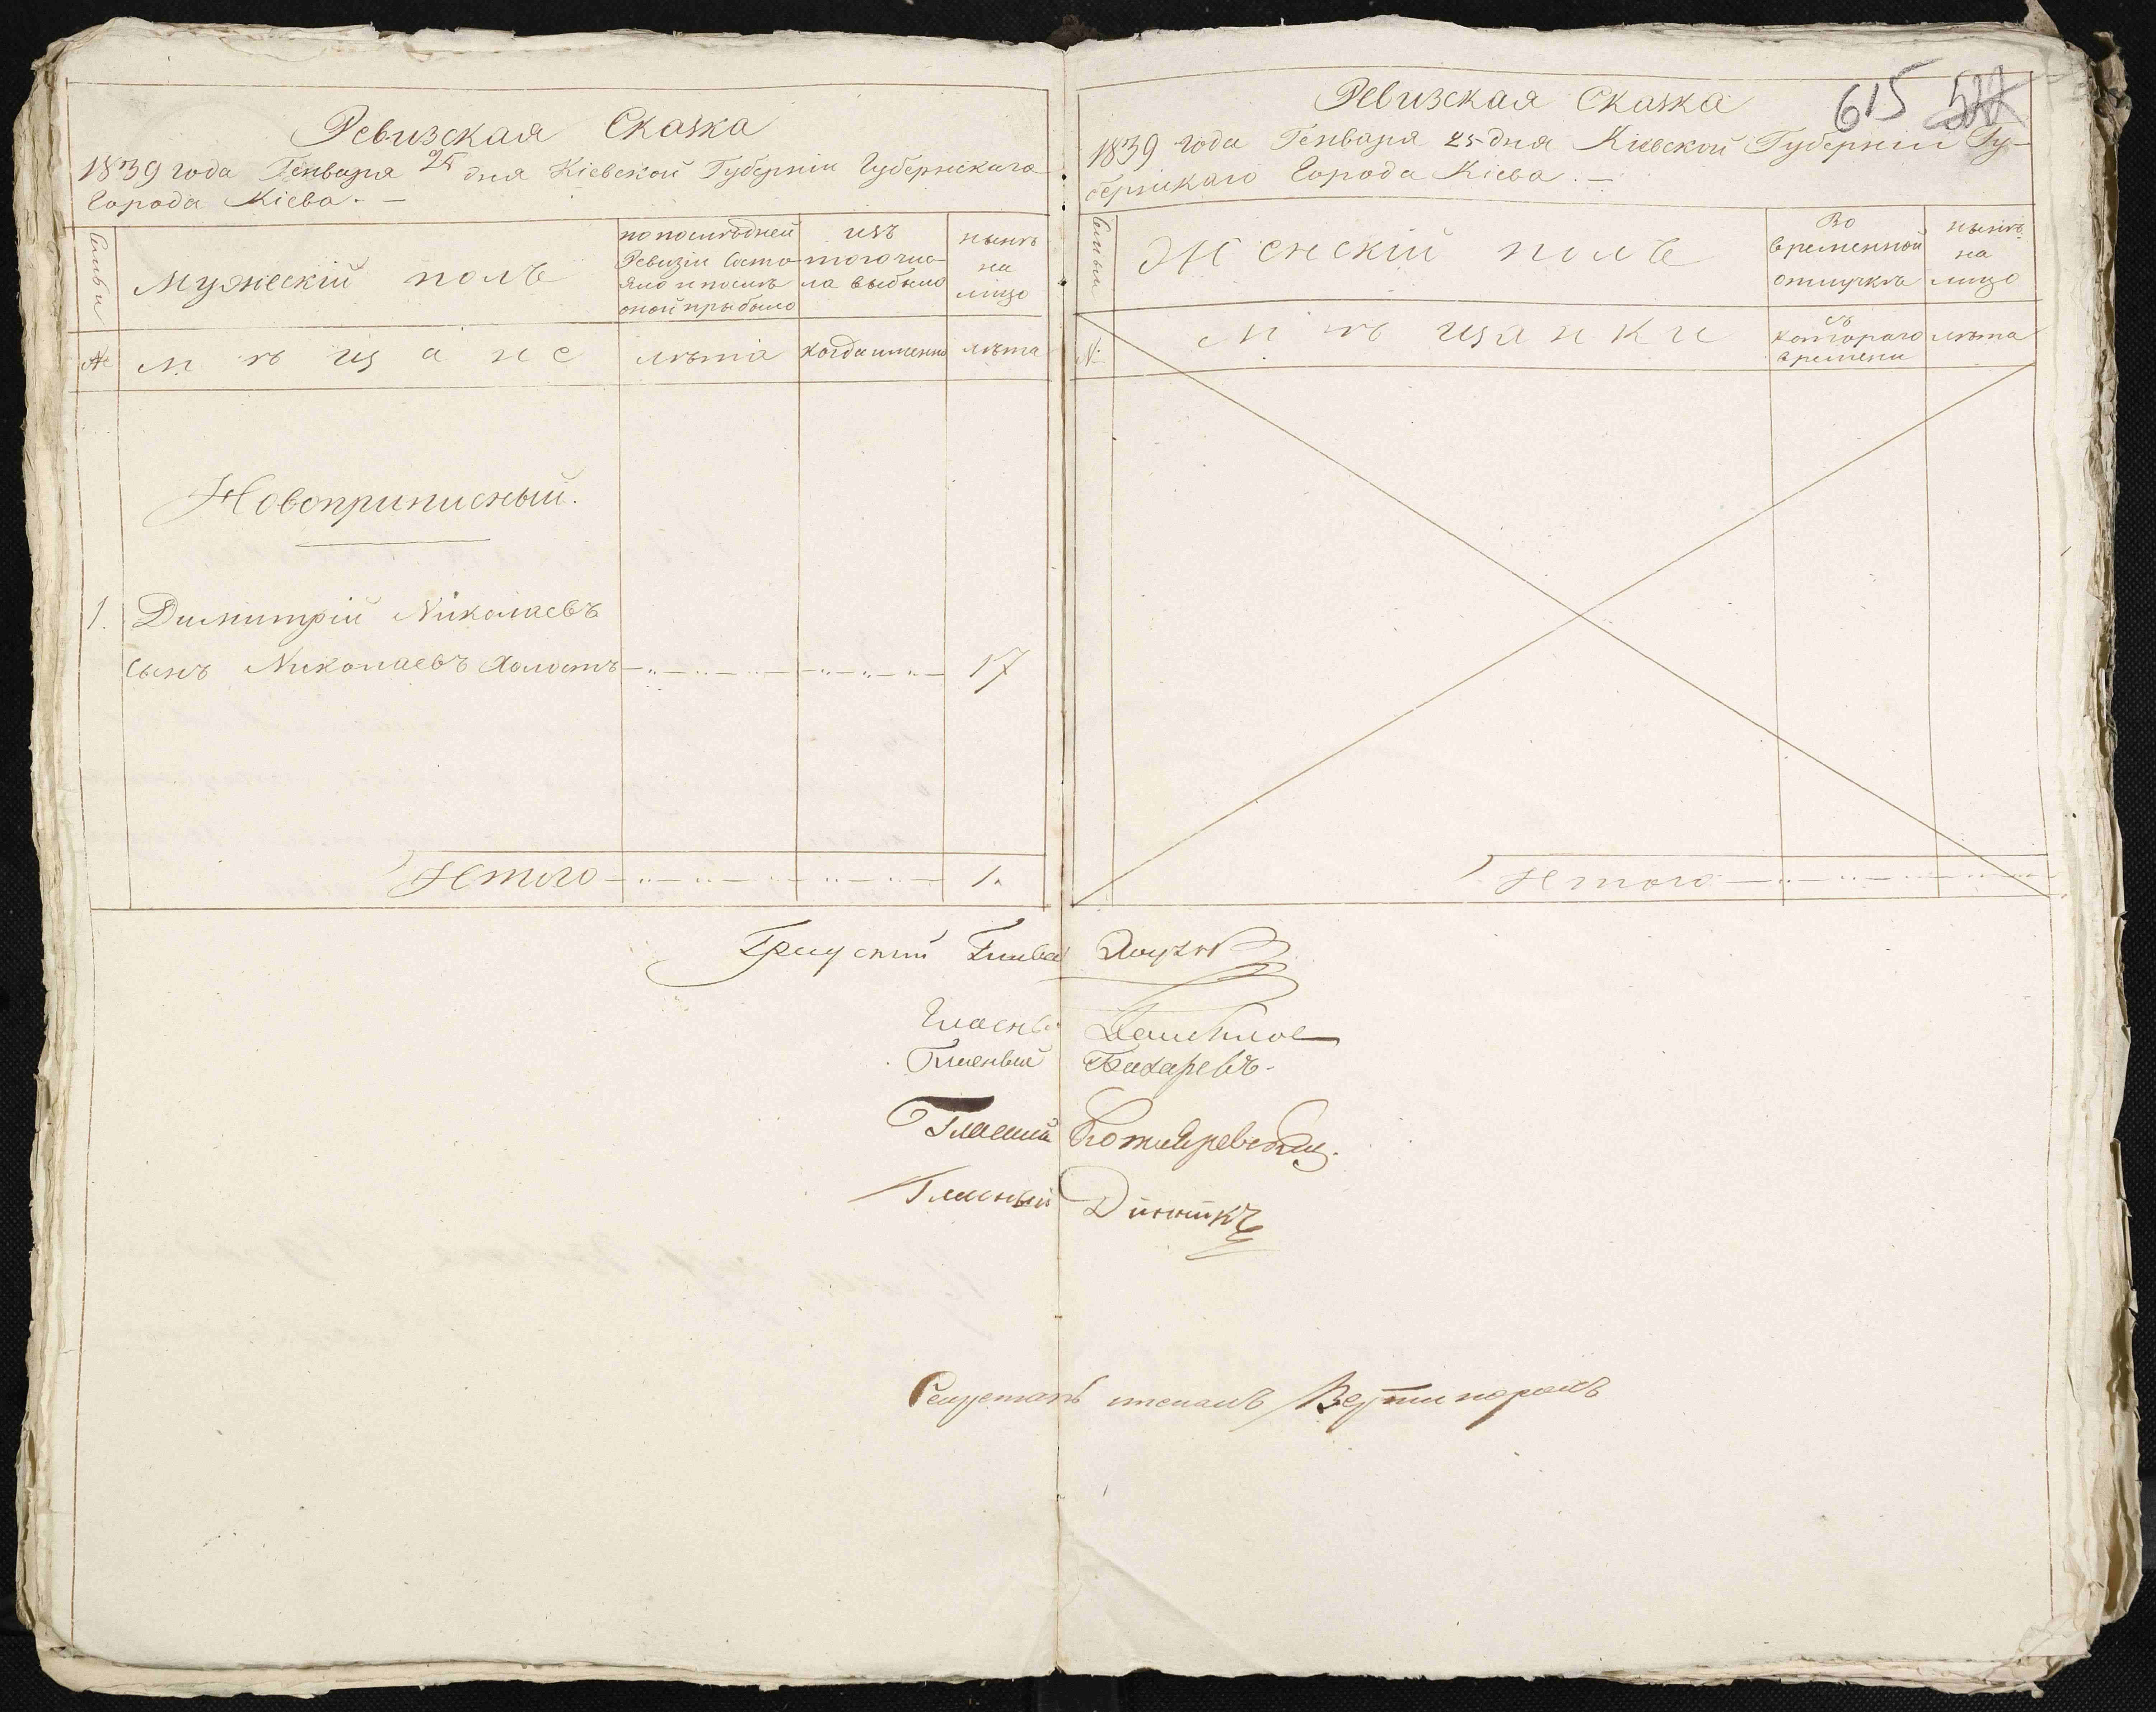 Ревизская Сказка
1839 года Генваря 25 дня Кіевской Губерніи Губернскаго
Города Кіева. —
Семьи
Мужескій полъ
по послѣдней
Ревизіи состо-
яло и послѣ
оной прыбыло
изъ
того чис-
ла выбыло
нынѣ
на
лицо
№
мѣщане
лѣта
когда именно
лѣта
Новоприписный.
1. Димитрій Николаевъ
сынъ Николаевъ Холостъ 17
Итого 1.
615
Ревизская Сказка
1839 года Генваря 25 дня Кіевской Губерніи Гу-
бернскаго Города Кіева. —
Семьи
Женскій полъ
Во
временной
отлучкѣ
нынѣ
на
лицо
№
мѣщанки
съ
котораго
времени
лѣта
Итого
Градскій Глава
Гласный
Гласный Бахаревъ.
Гласный
Гласный